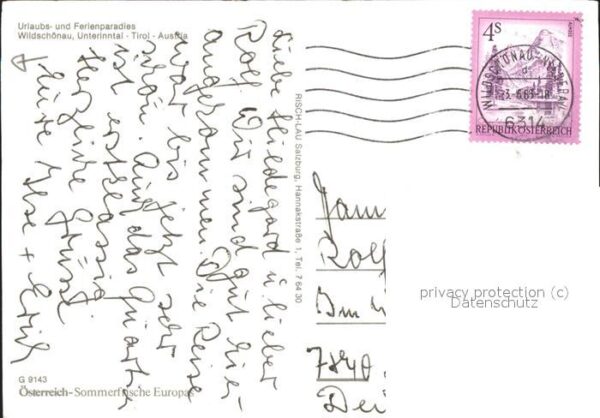 Urlaubs- und Ferienparadies
Wildschönau, Unterinntal - Tirol - Austria
Liebe Hildegard u. lieber
Rolf. Wir sind gut hier
angekommen. Die Reise
war bis jetzt sehr
schön. Auch das Quartier
ist erstklassig
Herzliche Grüsse
Eure Ilse +
RISCH-LAU Salzburg, Hannakstraße 1, Tel. 7 64 30
4S
REPUBLIK ÖSTERREICH
6314
Fam
Rolf
Im
7840
privacy protection (c)
Datenschutz
G 9143
Österreich-Sommerfrische Europas